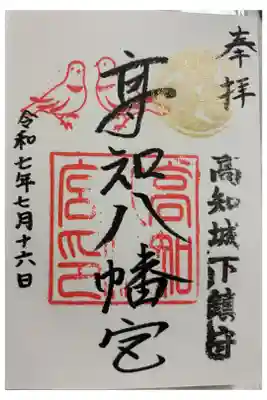 奉拝
高知城下鎮守
高知八幡宮
令和七年七月十六日